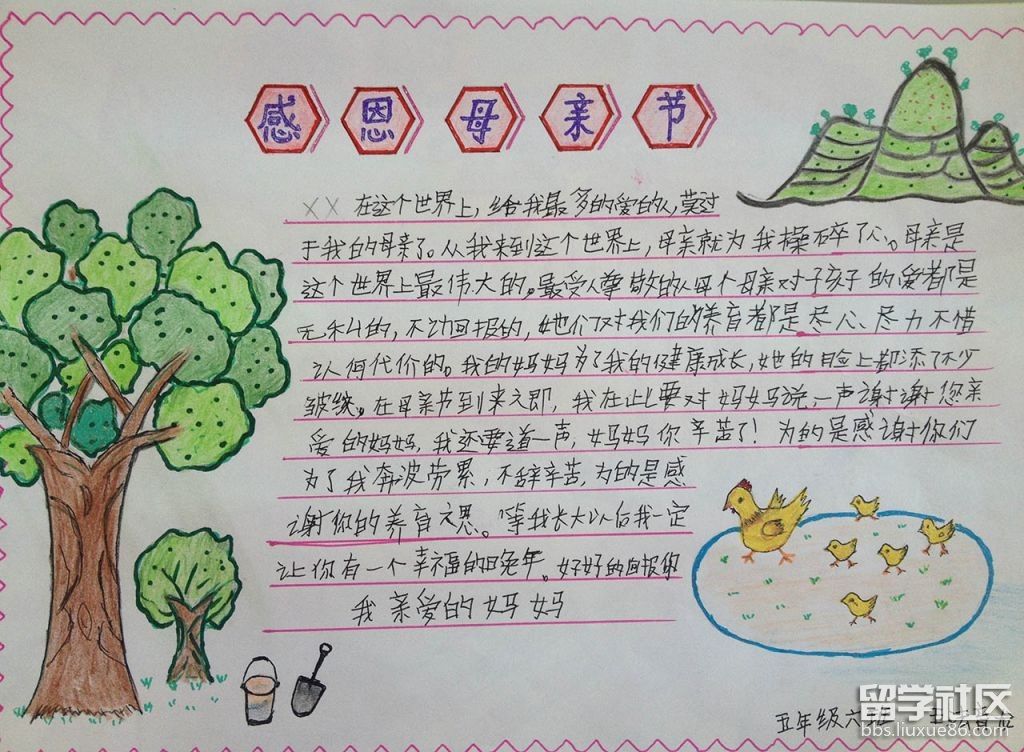 感恩母亲节
XX 在这个世界上，给我最多的爱的人，莫过
于我的母亲了。从我来到这个世界上，母亲就为我操碎了心。母亲是
这个世界上最伟大的。最受人尊敬的人每个母亲对子孩子的爱都是
无私的，不动回报的，她们对我们的养育都是尽心、尽力不惜
认何代价的。我的妈妈为了我的健康成长，她的脸上都添了不少
皱纹。在母亲节到来之即，我在此要对妈妈说一声谢谢您亲
爱的妈妈，我还要道一声，妈妈你辛苦了！为的是感谢你们
为了我奔波劳累，不辞辛苦，为的是感
谢你的养育之恩。等我长大以后我一定
让你有一个幸福的晚年。好好的回报你
我亲爱的妈妈
五年级六班 王
留学社区
bbs.liuxue86.com